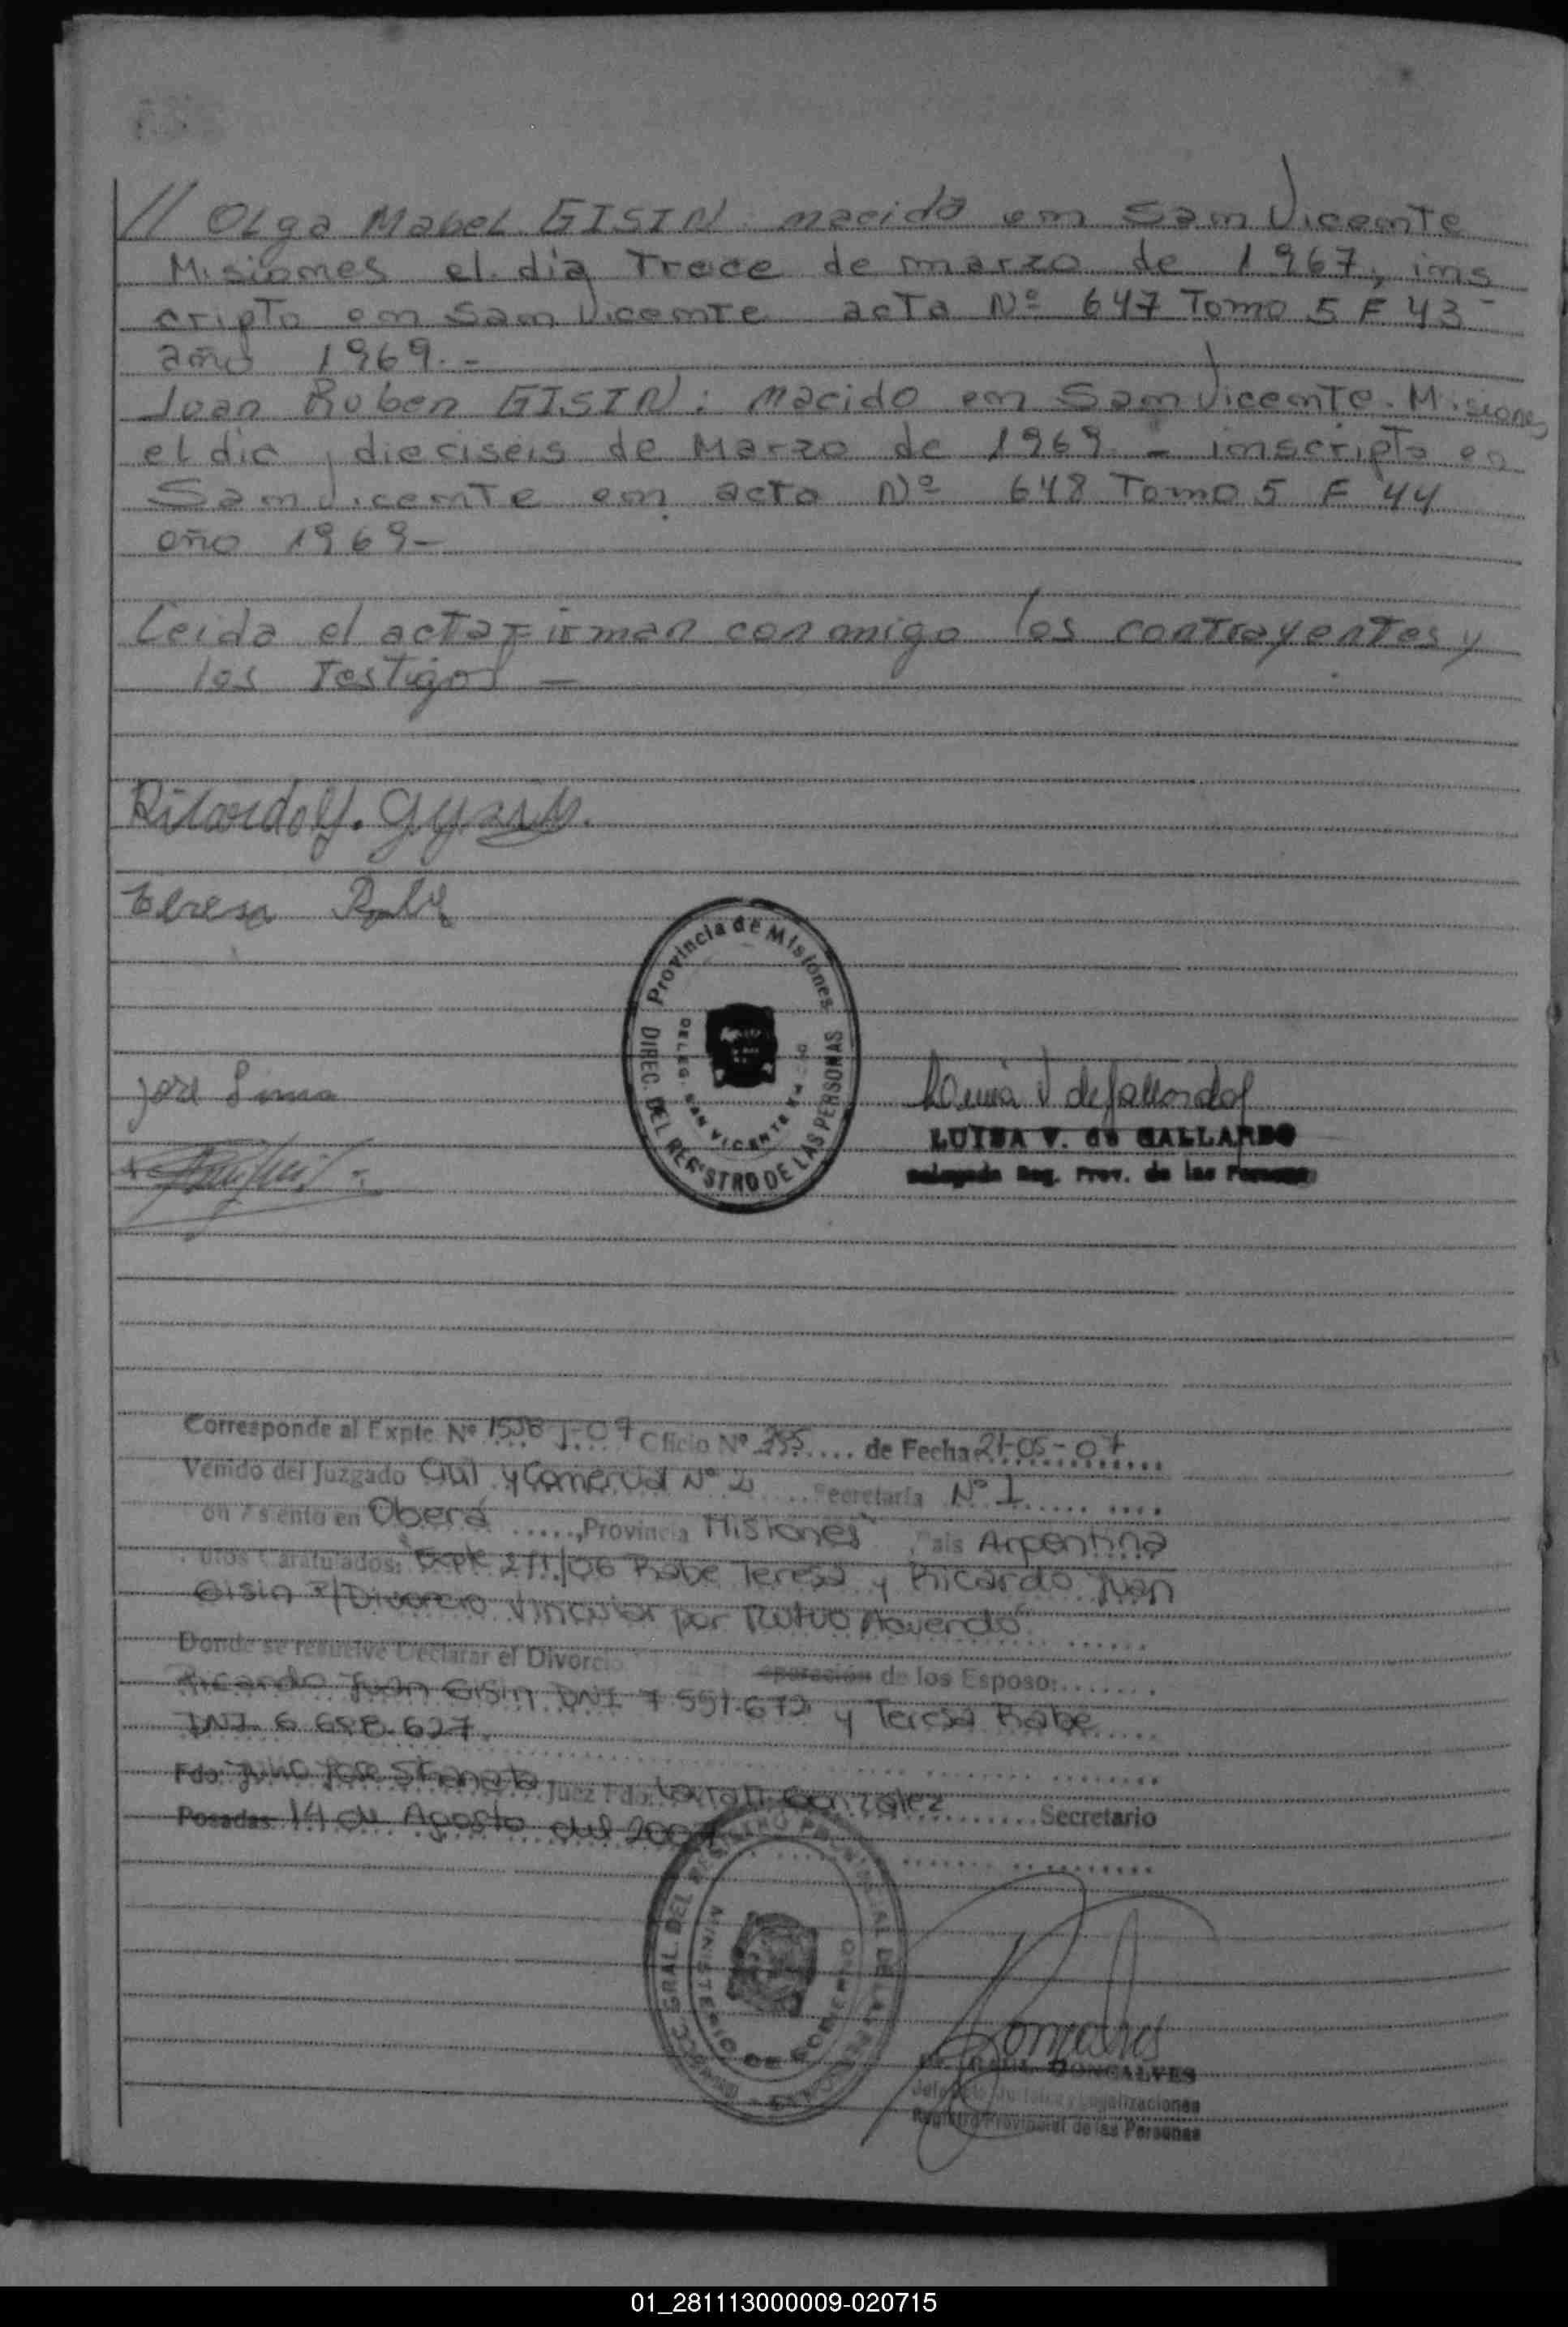 // Olga Mabel GISIN. nacida en San Vicente
Misiones el dia Trece de marzo de 1967, ins
cripta en San Vicente acta Nº 647 Tomo 5 F 43-
año 1969.-
Juan Ruben GISIN: nacido en San Vicente. Misiones
el dia, dieciseis de Marzo de 1969.- inscripta en
San Vicente en acta Nº 648 Tomo 5 F 44
año 1969-
Leida el acta firman conmigo los contrayentes y
los Testigos -
Teresa
Provincia de Misiones
DIREC. DEL REGISTRO DE LAS PERSONAS
DELEG. SAN VICENTE
LUISA V. de GALLARDO
Delegada Reg. Prov. de las Personas
Corresponde al Expte. Nº J-07 Oficio Nº de Fecha 21-05-07
Venido del Juzgado Civil y Comercial Nº 2 Secretaría Nº 1
con Asiento en Oberá, Provincia Misiones, Pais Argentina
Autos Caratulados: "Expte 211/06 Rabe Teresa y Ricardo Juan
Gisin s/Divorcio Vincular por Mutuo Acuerdo"
Donde se resuelve Declarar el Divorcio de los Esposos
Ricardo Juan Gisin DNI 7.551.672 y Teresa Rabe
DNI 6.658.627.
Fdo. Julio Jose Juez Fdo. Gonzalez Secretario
Posadas 14 de Agosto del 2007
DIRECC. GRAL. DEL REGISTRO PROVINCIAL DE LAS PERSONAS
MINISTERIO DE GOBIERNO
RAUL GONCALVES
Legalizaciones
Registro Provincial de las Personas
01_281113000009-020715